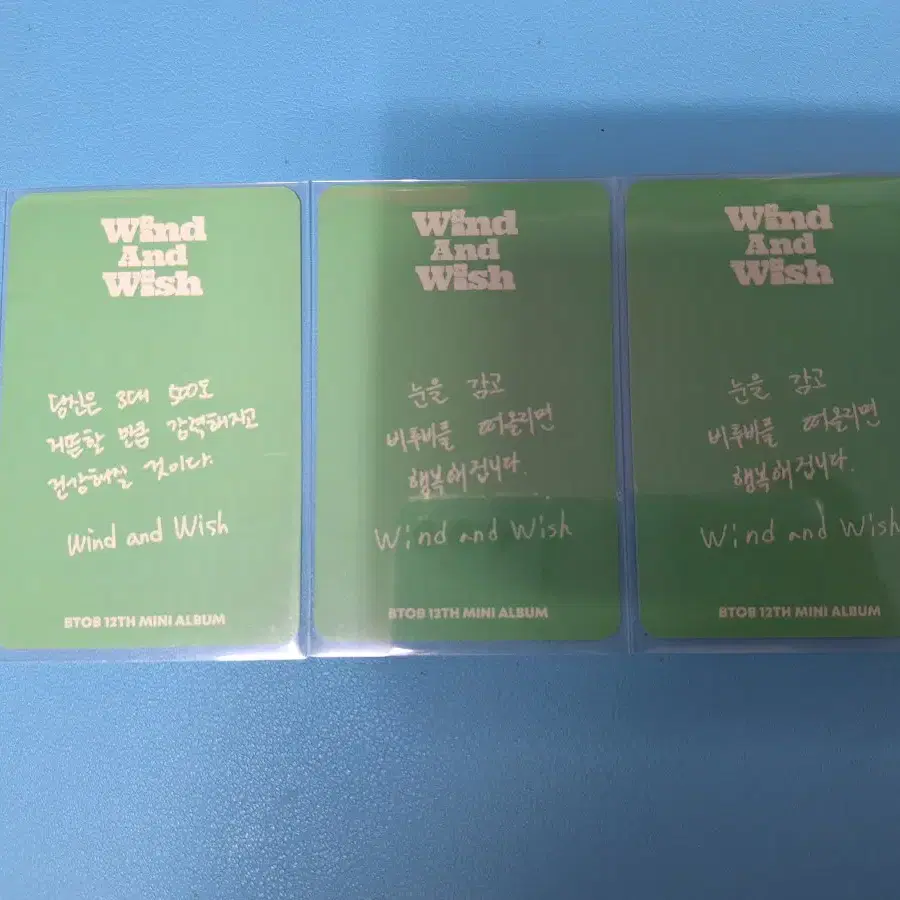 Wind
And
Wish
당신은 3대 500도
거뜬할 만큼 강력해지고
건강해질 것이다.
Wind and Wish
BTOB 12TH MINI ALBUM
Wind
And
Wish
눈을 감고
비투비를 떠올리면
행복해집니다.
Wind and Wish
BTOB 12TH MINI ALBUM
Wind
And
Wish
눈을 감고
비투비를 떠올리면
행복해집니다.
Wind and Wish
BTOB 12TH MINI ALBUM